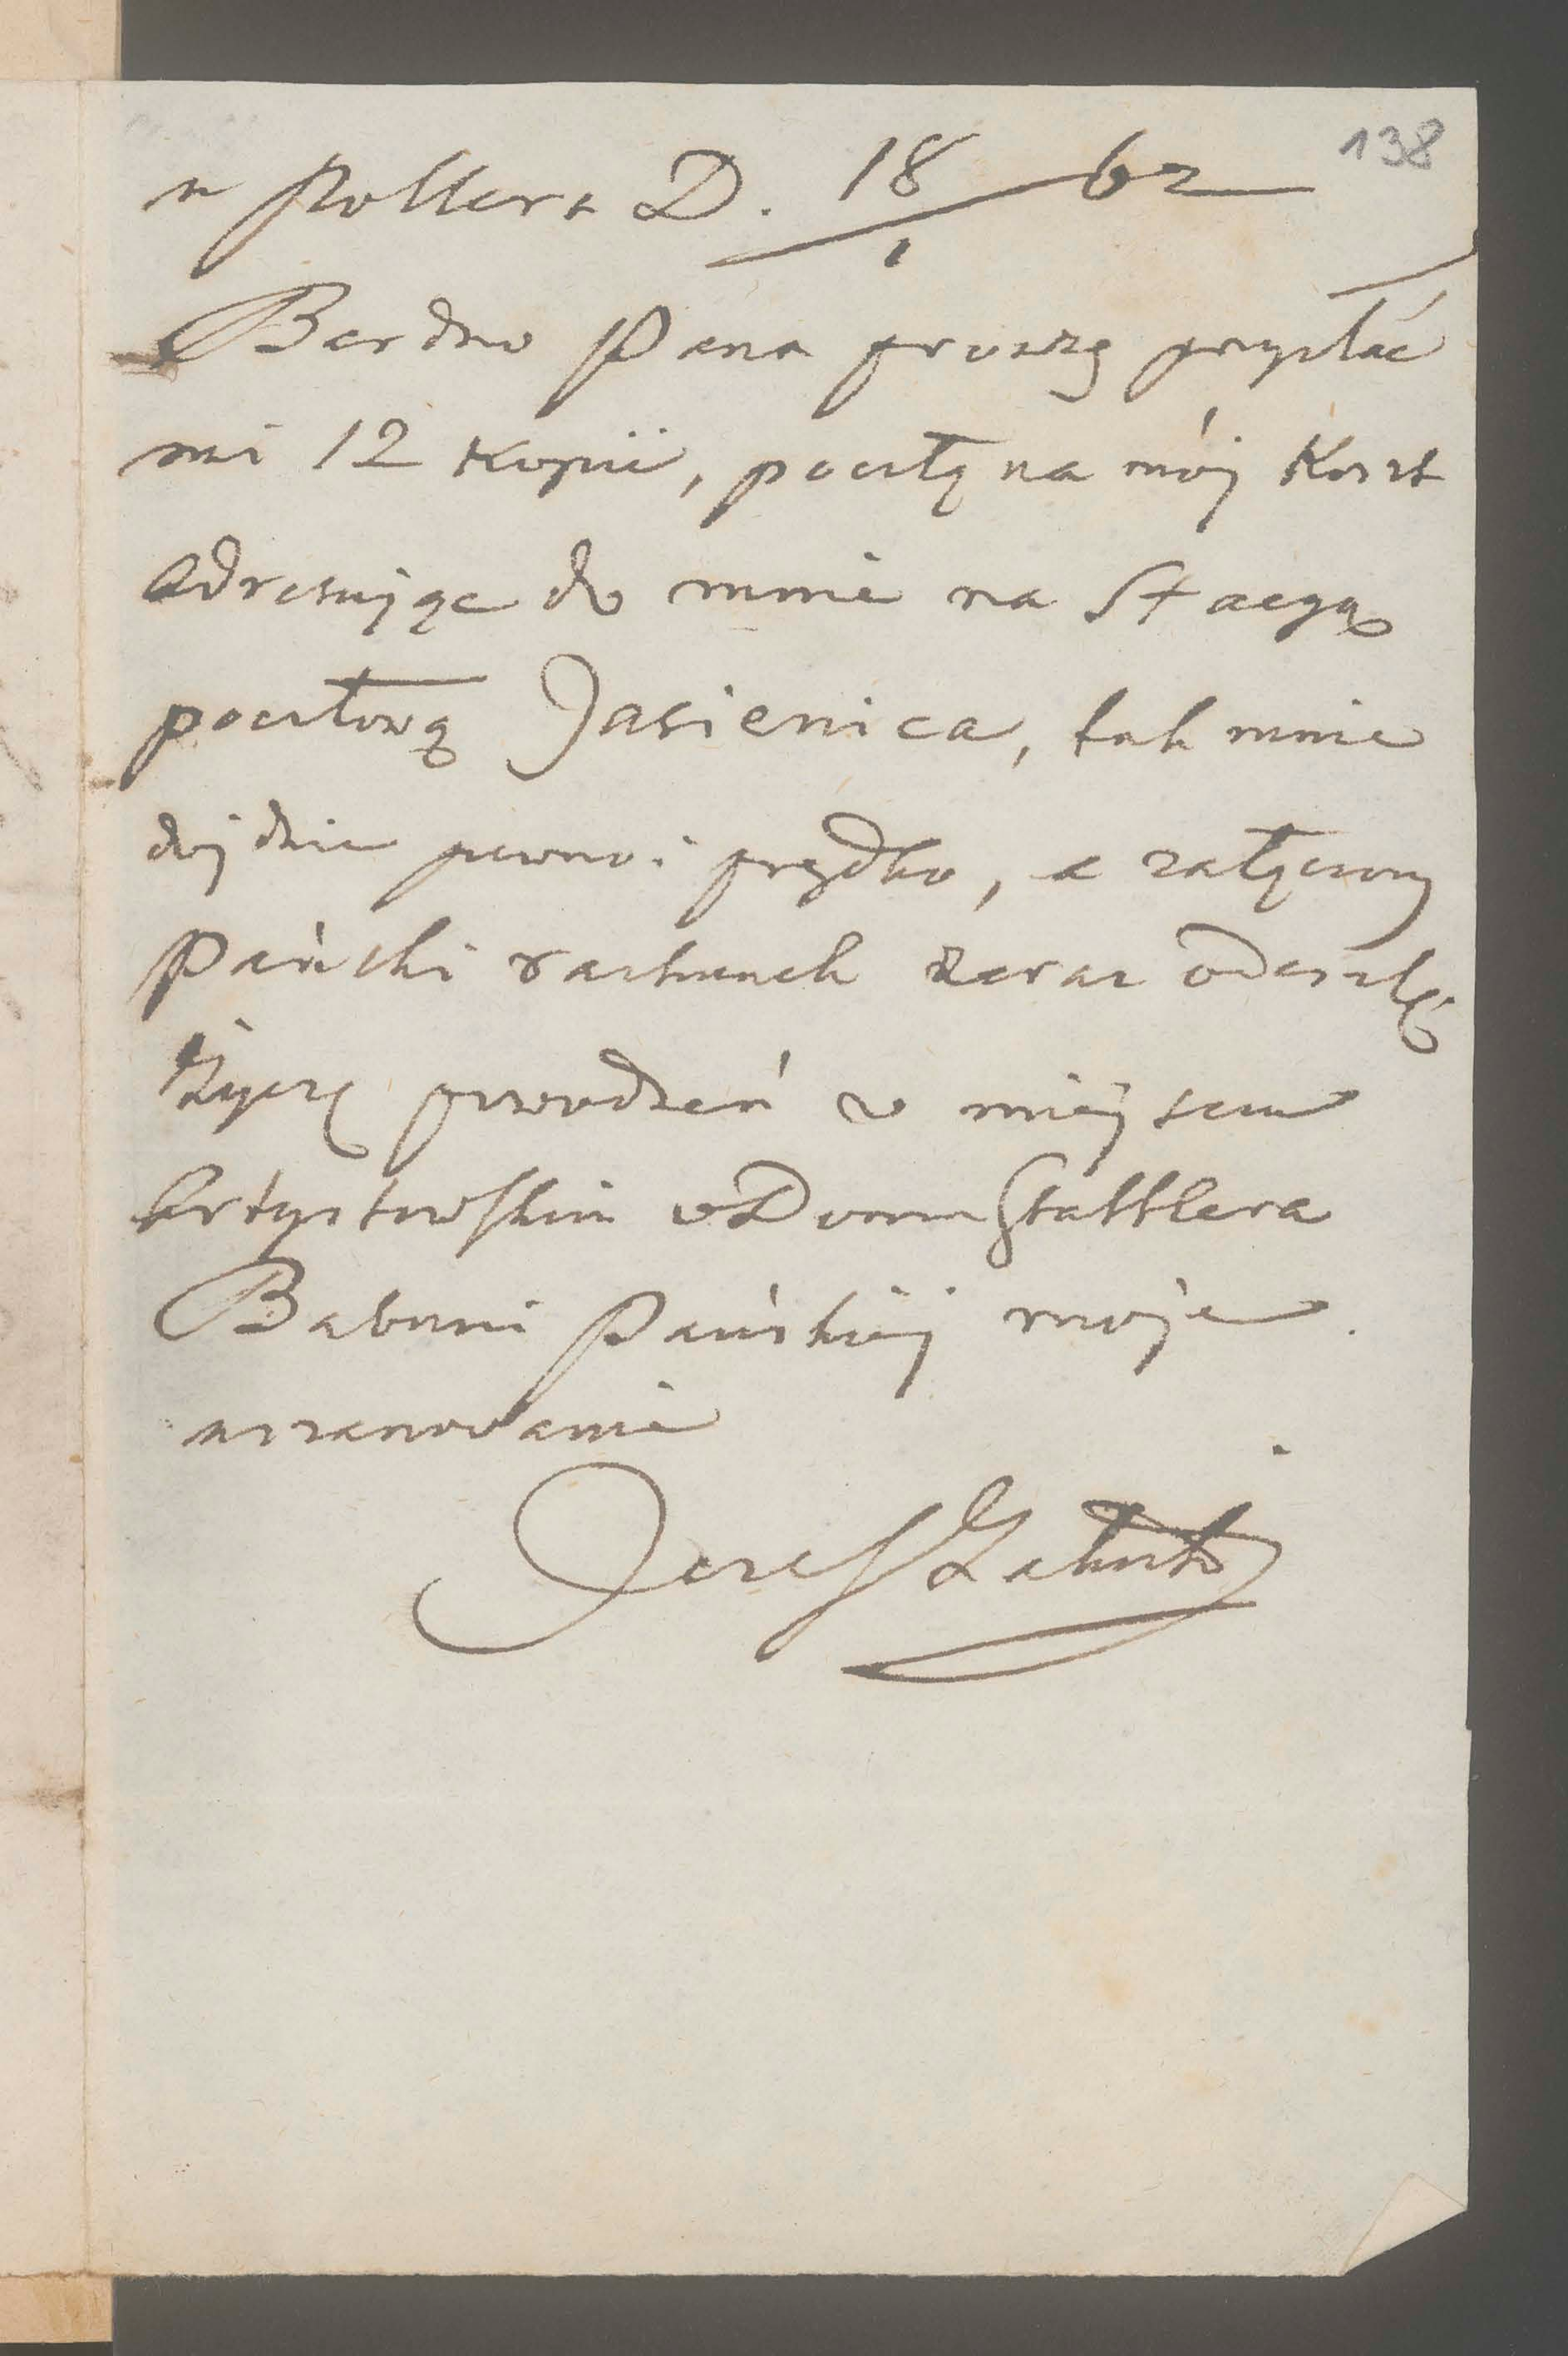 138
u Pollera D. 18/1 62
Bardzo Pana proszę przysłać
mi 12 Kopii, pocztą na mój Koszt
Adresując do mnie na Stacyą
pocztową Jasienica, tak mnie
dojdzie pewno i prędko, a załączony
Pański rachunek zaraz odeszlę
Życzę powodzeń w miejscu
Artystowskim w Domu Stattlera
Babuni Pańskiéj moje
uszanowanie
Józef Załuski